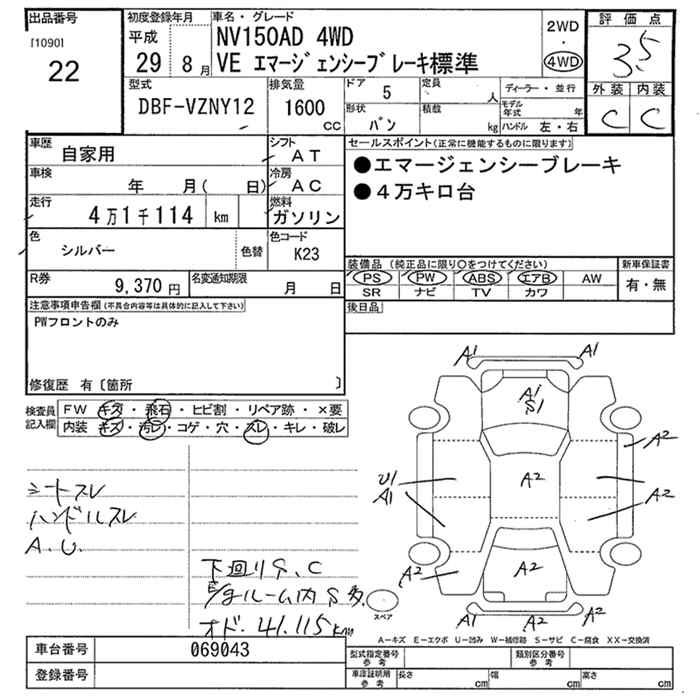 出品番号 初度登録年月 車名・グレード 評価点
[1090] 平成 NV150AD 4WD 2WD
22 29 8月 VE エマージェンシーブレーキ標準 ・ 3.5
4WD
型式 排気量 ドア 5 定員 人 ディーラー・並行 外装 内装
DBF-VZNY12 1600 cc 形状 バン 積載 kg モデル年式 年 C C
ハンドル 左・右
車歴 自家用 シフト AT セールスポイント(正常に機能するものに限ります)
車検 年 月( 日) 冷房 AC ●エマージェンシーブレーキ
走行 4万1千114 km 燃料 ガソリン ●4万キロ台
色 シルバー 色替 色コード K23
R券 9,370円 名変通知期限 月 日
装備品 (純正品に限り○をつけてください) 新車保証書
PS PW ABS エアB AW 有・無
SR ナビ TV カワ
後日品
注意事項申告欄(不具合内容等は具体的に記入して下さい)
PWフロントのみ
修復歴 有〔箇所 〕
検査員記入欄 FW キズ・飛石・ヒビ割・リペア跡・×要
内装 キズ・汚レ・コゲ・穴・スレ・キレ・破レ
シートスレ
ハンドルスレ
A.U.
下回りS、C
E/gルーム内S多
オド.41.115km
A1 A1
A1
S1
A2
U1 A2 A2
A1
A2 A2
A1 A2 A2
スペア
A-キズ E-エクボ U-凹み W-補修跡 S-サビ C-腐食 XX-交換済
車台番号 069043 型式指定番号 参考 類別区分番号 参考
登録番号 車庫証明用 参考 長さ cm 幅 cm 高さ cm